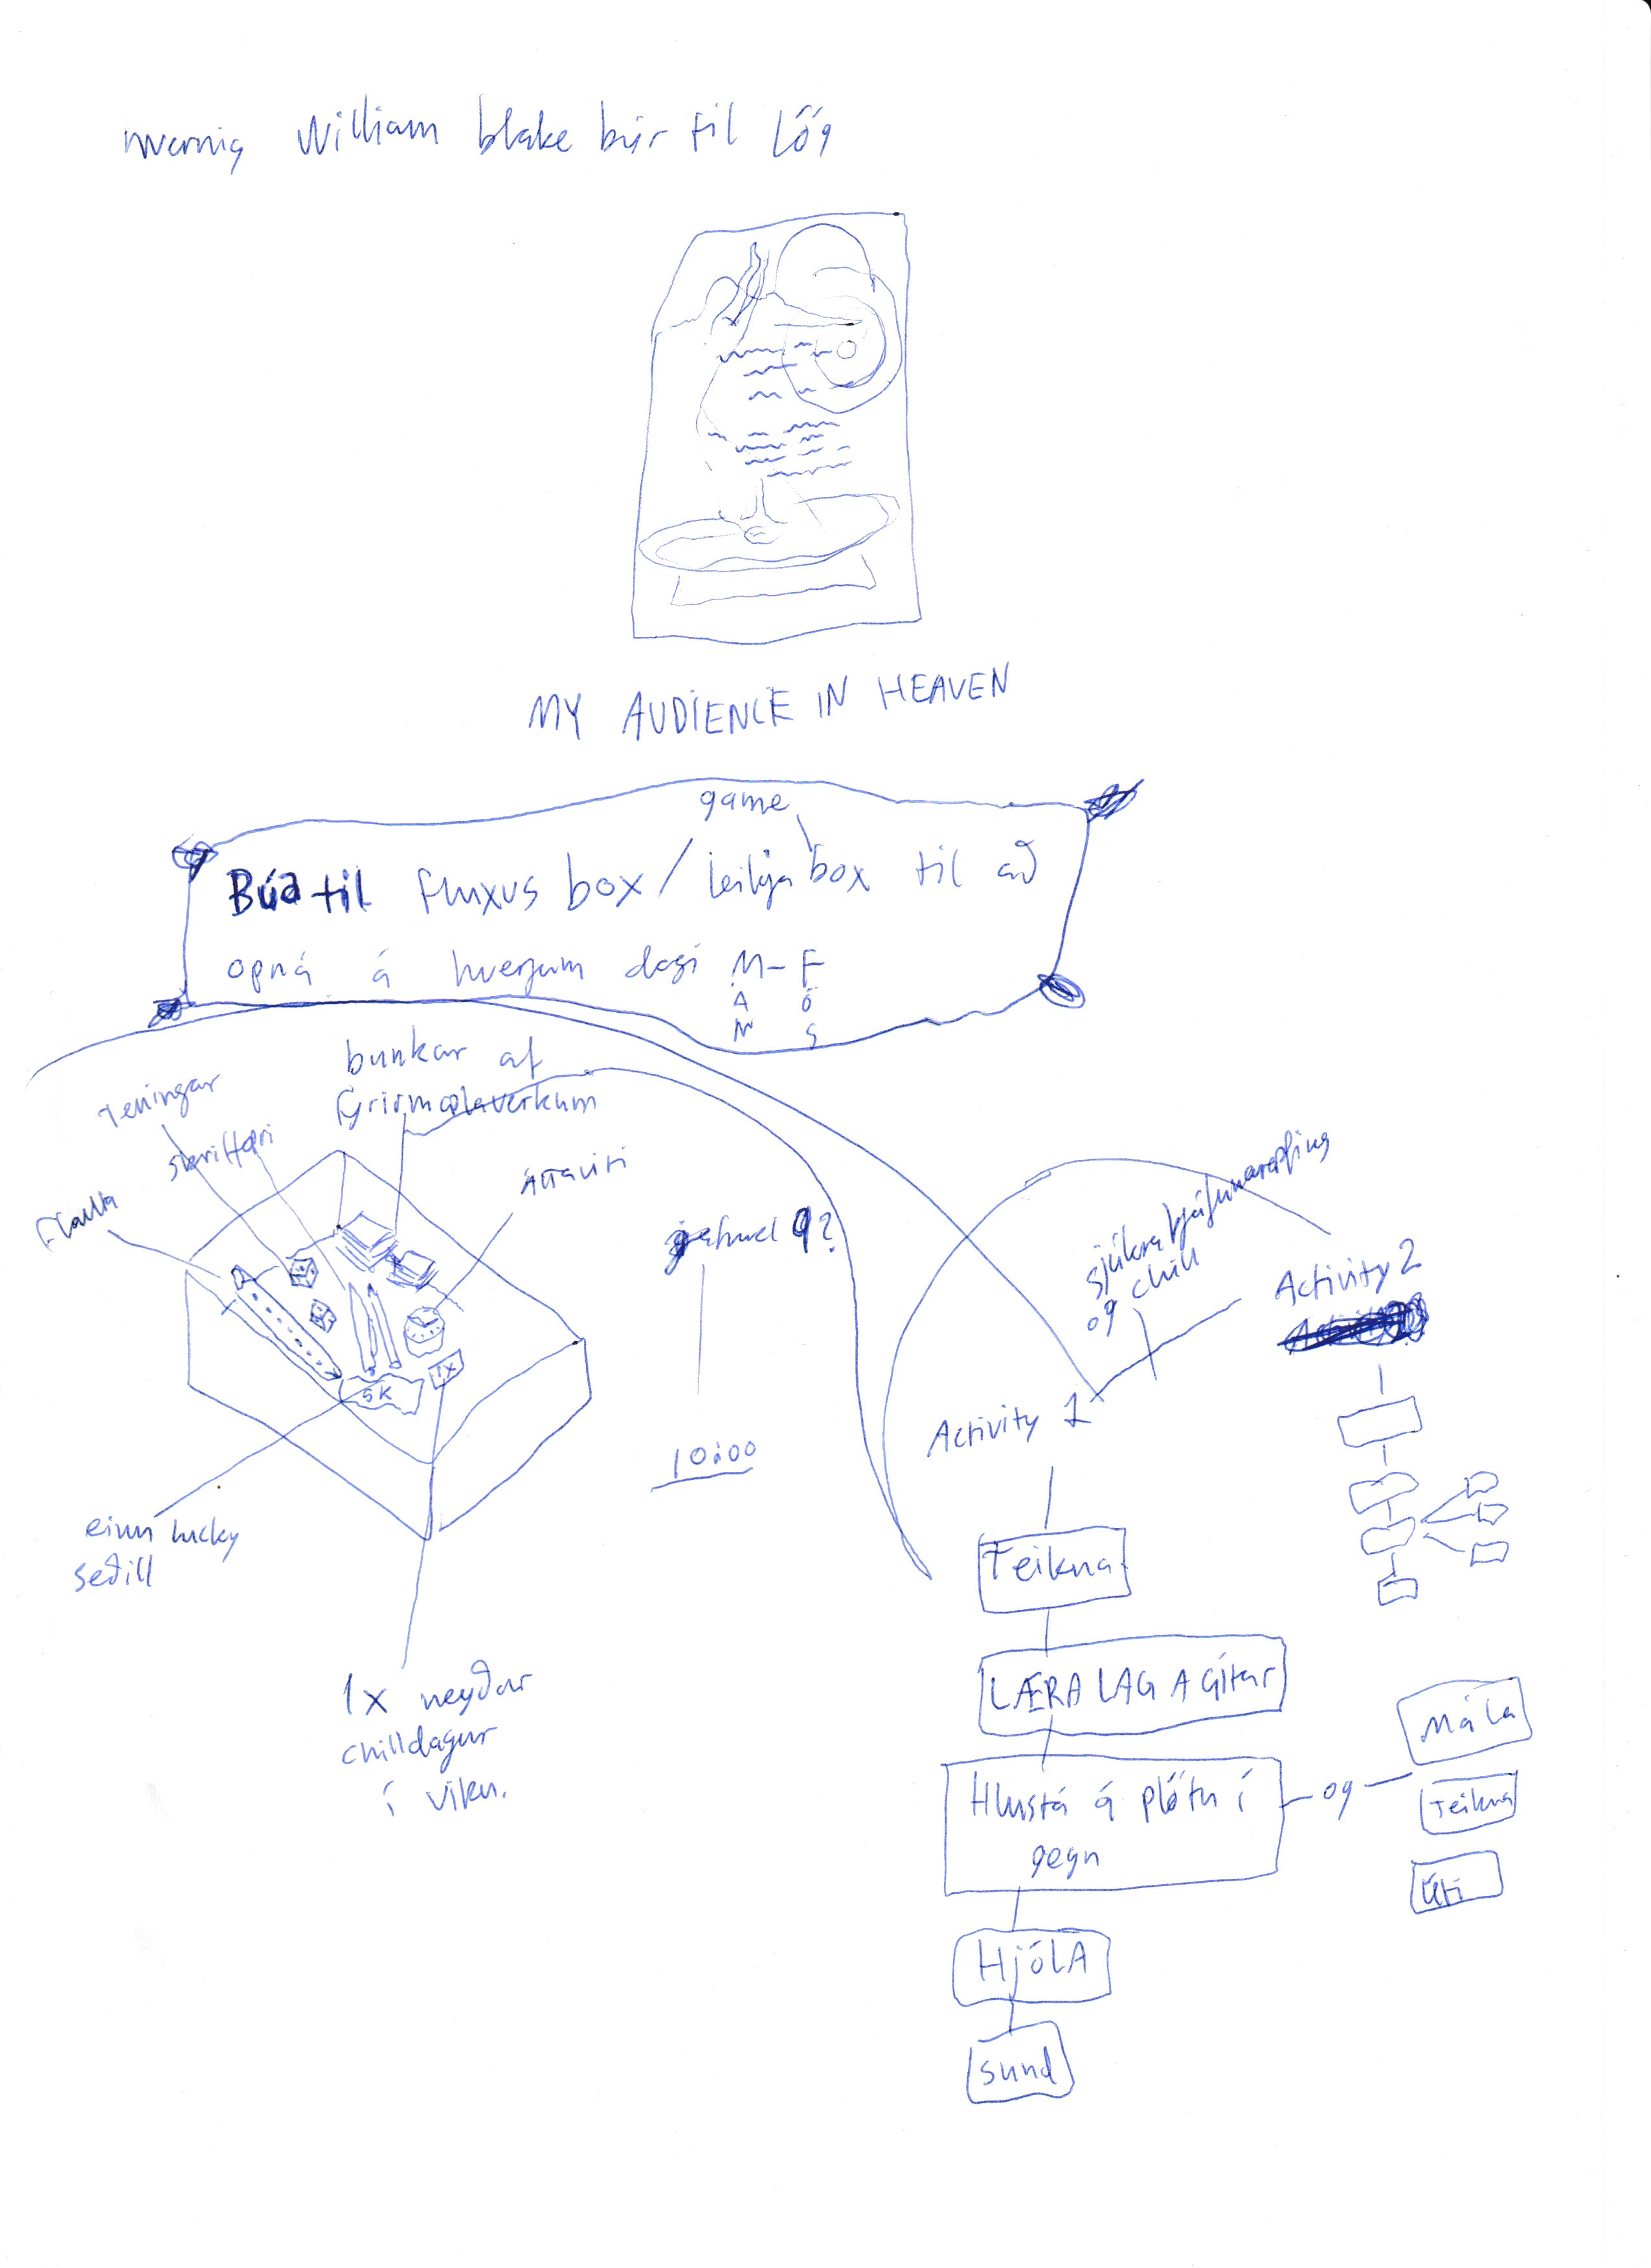 hvernig William blake býr til lög
MY AUDIENCE IN HEAVEN
game
Búa til fluxus box / leikja box til að
opna á hverjum degi M - F
A Ö
N S
bunkar af
fyrirmælaverkum
Teningar
skriffæri
Flauta
Áttaviti
jafnvel 9?
10:00
5K
1X
einn lucky
seðill
1x neyðar
chilldagur
í viku.
sjúkraþjálfunaræfing
og chill
Activity 2
Activity 1
Teikna
LÆRA LAG A Gítar
Hlusta á plötu í
gegn
og
Mála
Teikna
Úti
HjólA
Sund